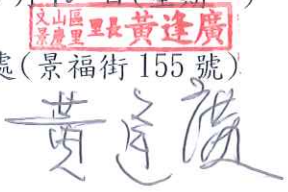 文山區
景慶里 里長 黃逢廣
處(景福街 155 號)
黃逢廣